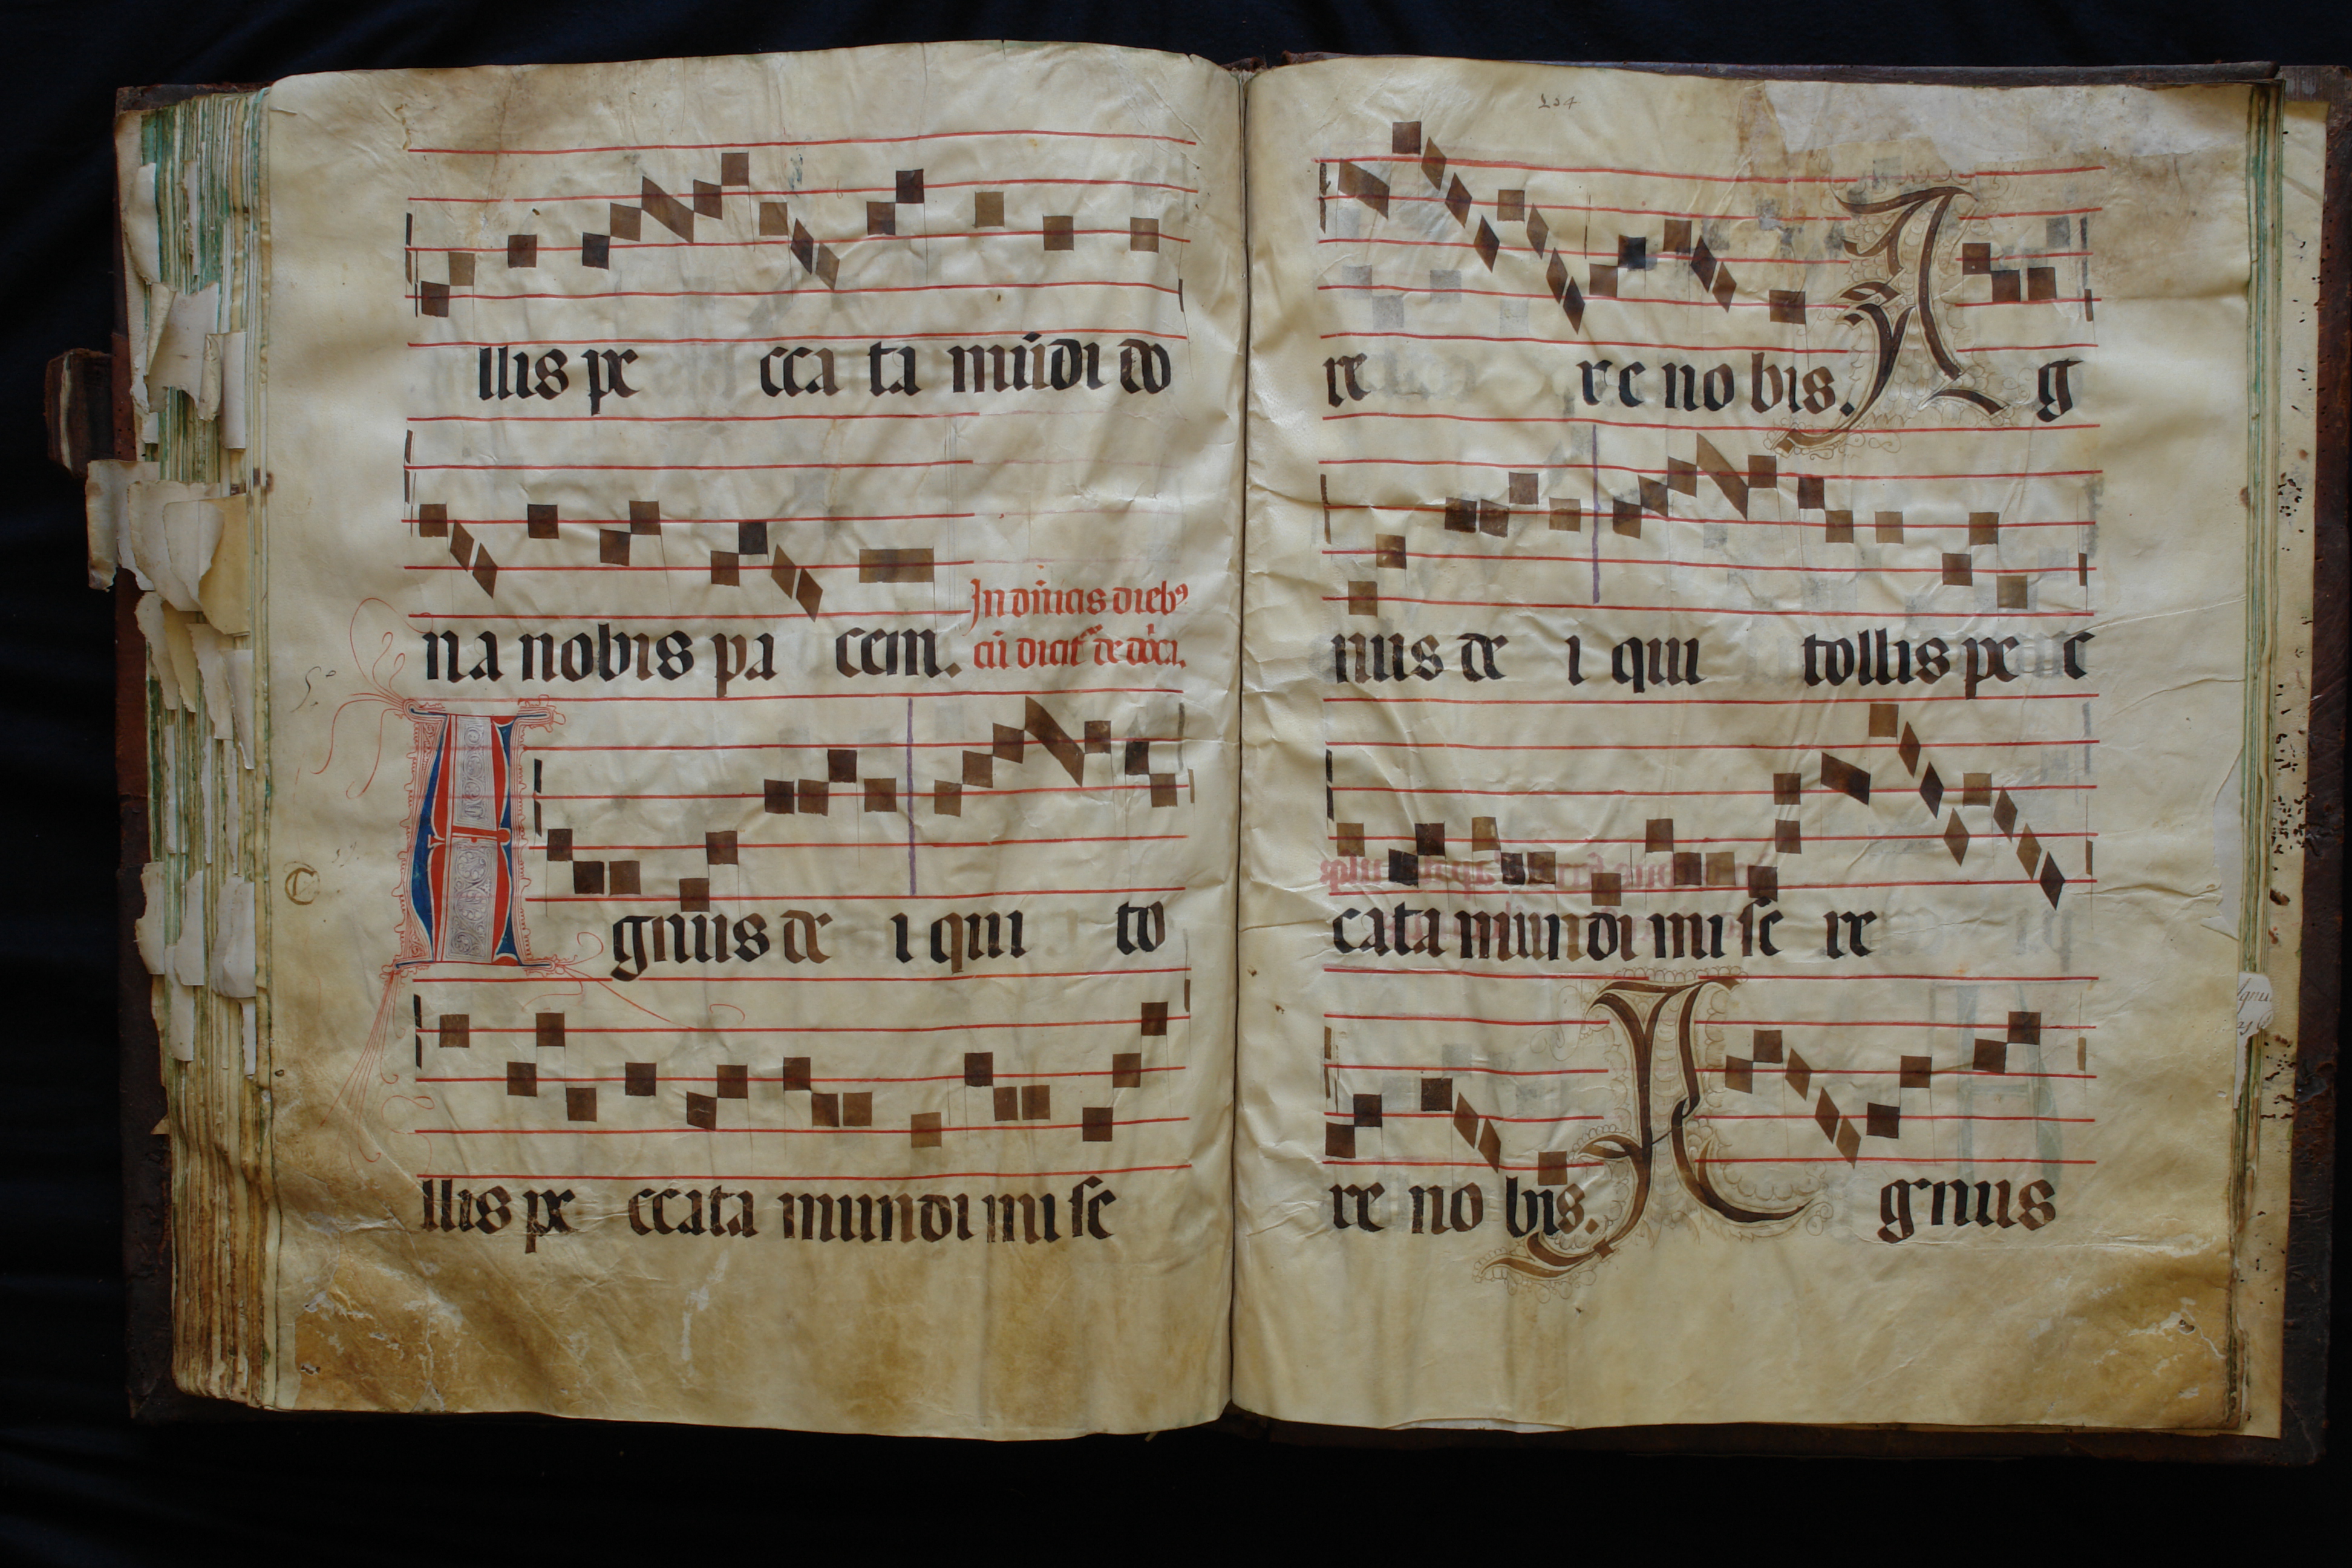 llis pe cca ta mūdi do
na nobis pa cem.
In dn̄icis dieb⁹
cū dicit de dn̄ica.
Agnus de i qui to
llis pe ccata mundi mi se
re re no bis. A g
nus de i qui tollis pe c
cata mundi mi se re
re no bis. A gnus